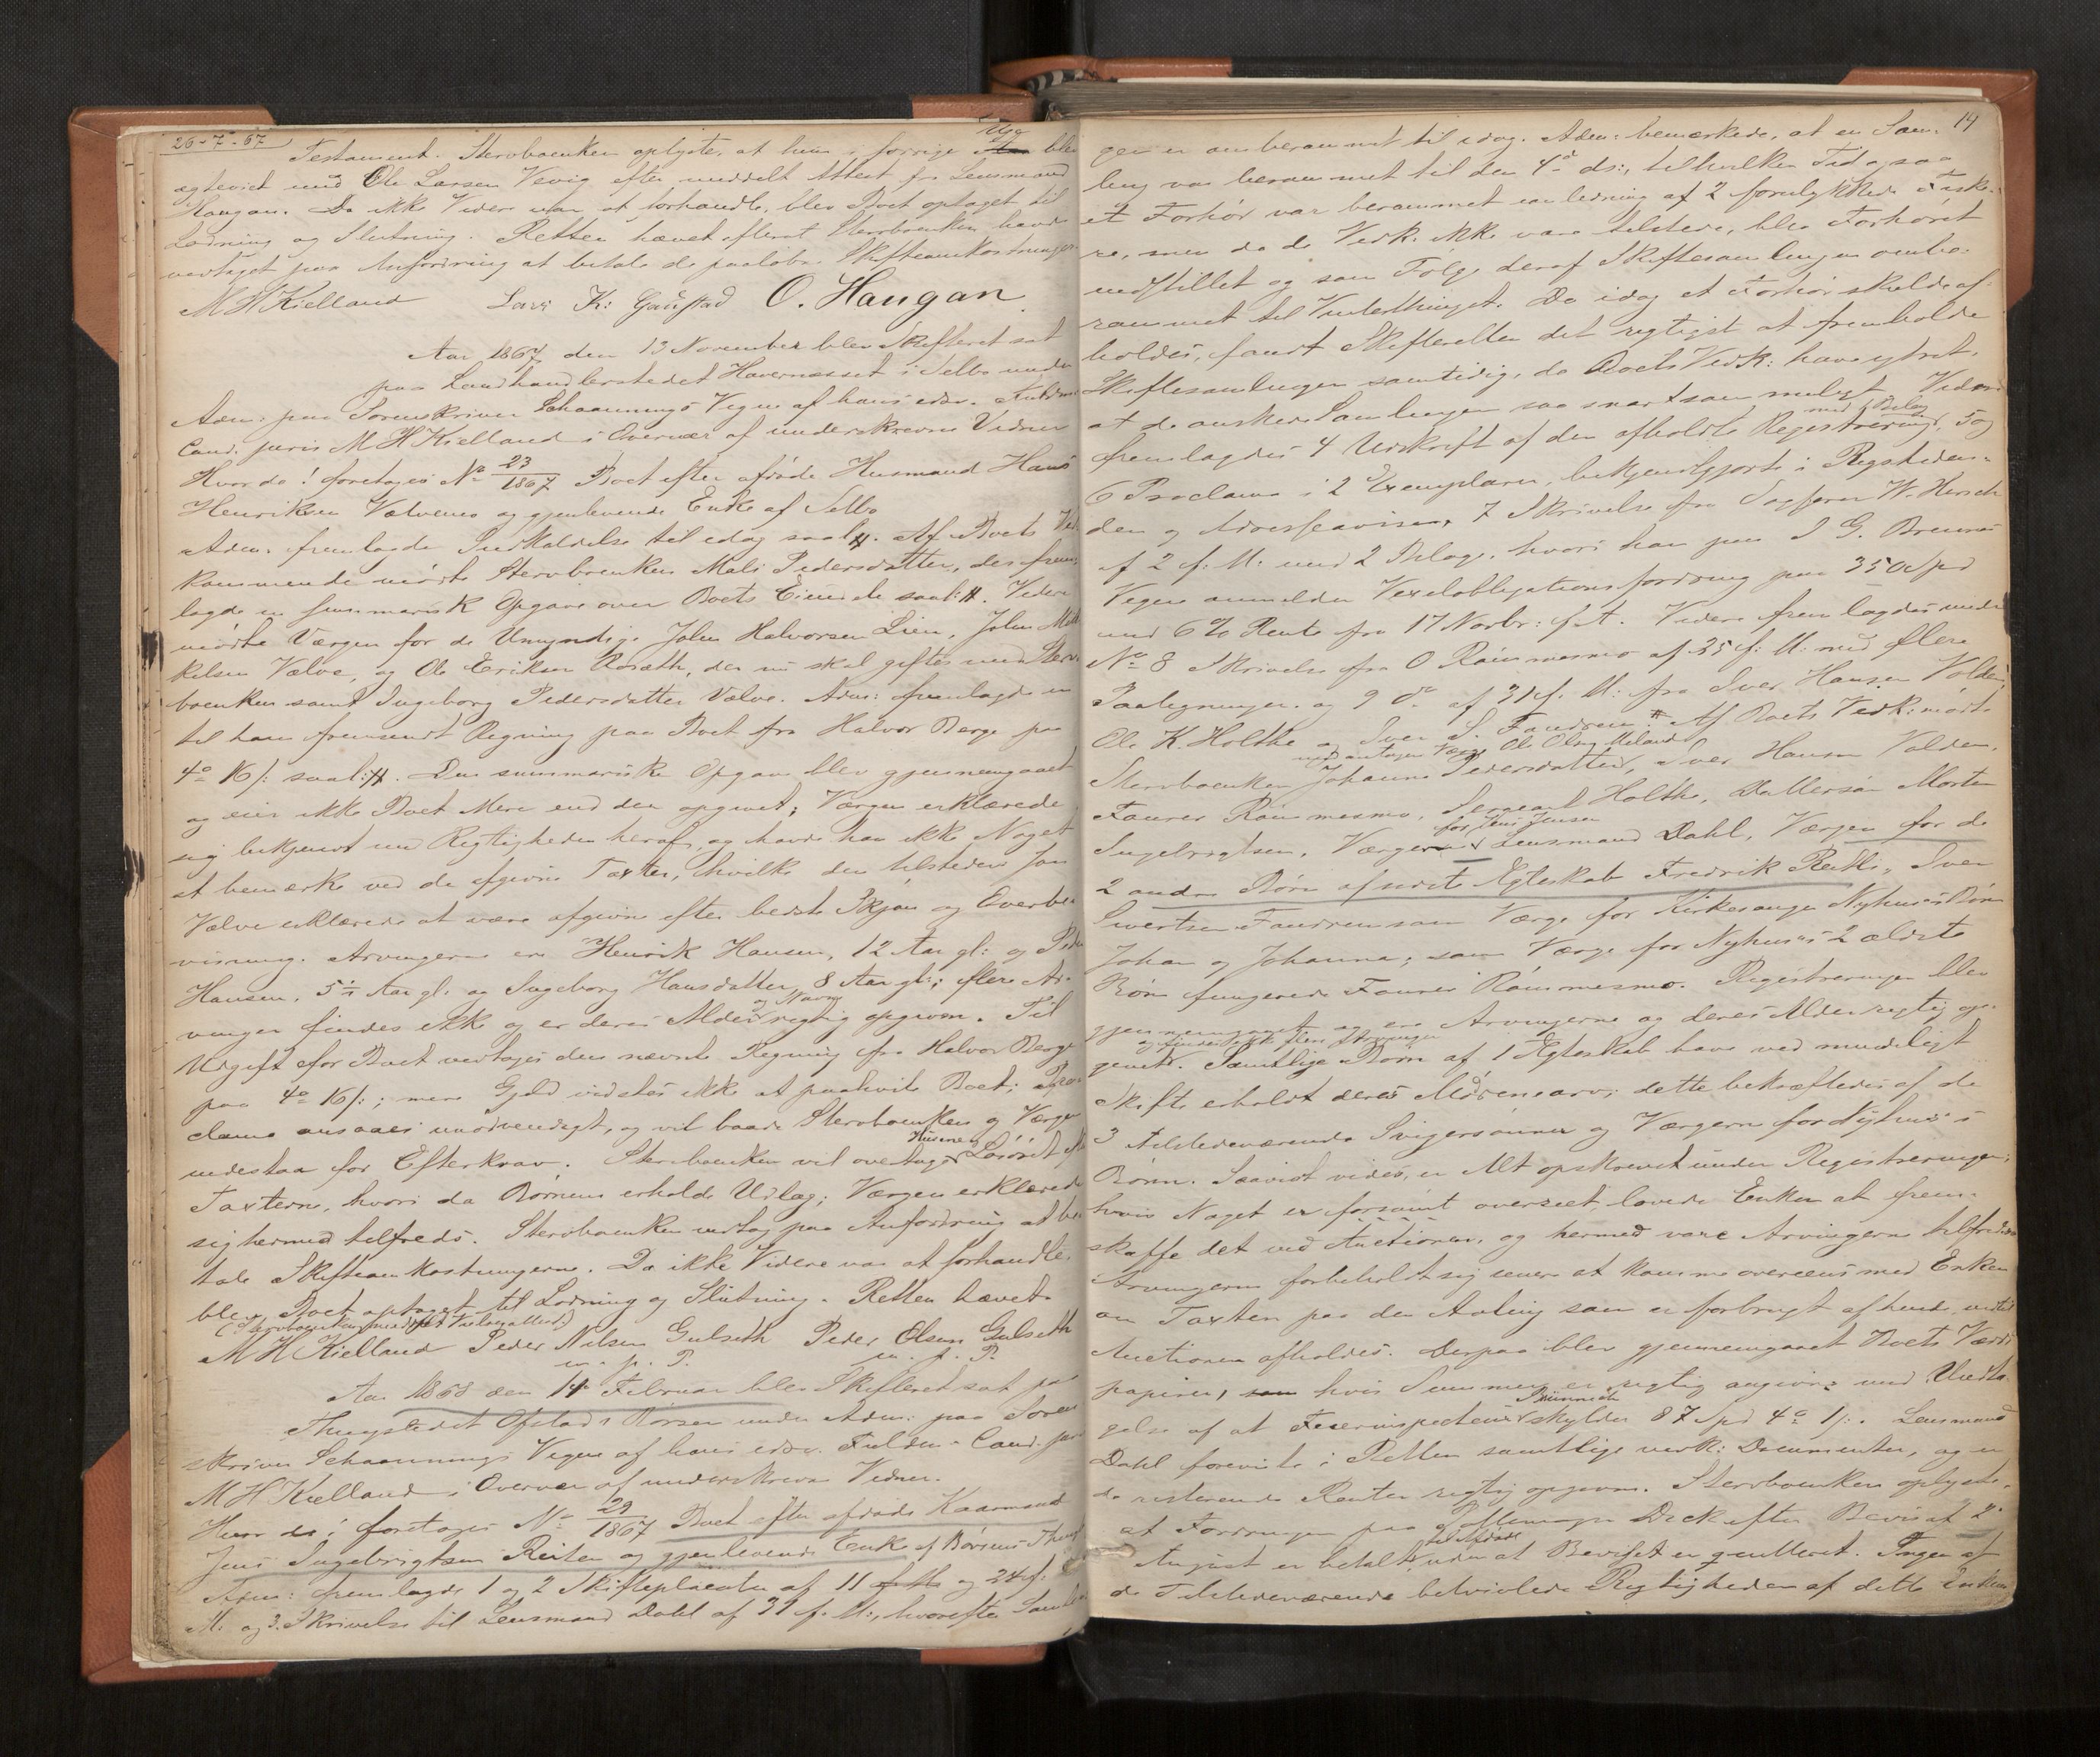 26-7-67
Testament. Stervboenken oplyste, at hun i forrige Uge blev
egteviet med Ole Larsen Vevig efter meddelt Attest fra Lensmand
Haugan. Da ikke Videre var at forhandle, blev Boet optaget til
Lodning og Slutning. Retten hævet efterat Stervboenken havde
vedtaget paa Anfordring at betale de paaløbne Skifteomkostninger.
M H Kielland Lars K: Gaustad O. Haugan.
Aar 1867 den 13 November blev Skifteret sat
paa Landhandlerstedet Havernesset i Selbo under
Adm: paa Sorenskriver Schaannings Vegne af hans edsv. Fuldm
Cand. juris M H Kielland i Overvær af underskrevne Vidner
Hvor da! foretoges No 23/1867 Boet efter afdøde Husmand Hans
Henriksen Vælvenes og gjenlevende Enke af Selbo
Adm: fremlagde Indkaldelse til idag saal: #. Af Boets Ved-
kommende mødte Stervboenken Mali Pedersdatter, der frem-
lagde en summarisk Opgave over Boets Eiendele saal: #. Videre
mødte Værgen for de Umyndige John Halvorsen Lien, John Mik-
kelsen Vælve, og Ole Eriksen Rosæth, der nu skal giftes med Sterv-
boenken samt Ingeborg Pedersdatter Vælve. Adm: fremlagde en
til ham fremsendt Regning paa Boet fra Halvor Berge paa
4o 16 /: saal: #. Den summariske Opgave blev gjennemgaaet
og eier ikke Boet Mere end den opgivet; Værgen erklærede
sig bekjendt med Rigtigheden heraf, og havde han ikke Noget
at bemærke ved de afgivne Taxter, hvilke den tilstedev. Jon
Vælve erklærede at være afgivne efter bedste Skjøn og Overbe-
visning. Arvingerne ere Henrik Hansen, 12 Aar gl: og Peder
Hansen, 5 ½ Aar gl: og Ingeborg Hansdatter 8 Aar gl:; flere Ar-
vinger findes ikke og er deres Alder og Navne rigtig opgiven. Til
Udgift for Boet vedtoges den nævnte Regning fra Halvor Berge
paa 4o 16 /:; mere Gjeld vidstes ikke at paahvile Boet; Pro-
clama ansaaes unødvendigt, og vil baade Stervboenken og Værgen
indestaa for Efterkrav. Stervboenken vil overtage Husene og Løsøret efter
Taxterne, hvori da Børnene erholde Udlæg; Værgen erklærede
sig hermed tilfreds. Stervboenken vedtog paa Anfordring at be-
tale Skifteomkostningerne. Da ikke Videre var at forhandle,
blev Boet optaget til Lodning og Slutning. Retten hævet.
M H Kielland Peder Nilsen Gulseth Peder Olsen Gulseth
m. p. P. m. p. P.
Aar 1868 den 14 Februar blev Skifteret sat paa
Thingstedet Ofstad i Børsen under Adm: paa Soren
skriver Schaannings Vegne af hans edsv. Fuldm: Cand. juris
M H Kielland i Overvær af underskrevne Vidner.
Hvor da! foretoges No 29/1867 Boet efter afdøde Kaarmand
Jens Ingebrigtsen Reiten og gjenlevende Enke af Børsens Thingl
Adm: fremlagde 1 og 2 Skifteplacater af 11 f. M. og 24 f:
M. og 3. Skrivelse til Lensmand Dahl af 31 f. M:, hvorefter Samlin
19
gen er omberammet til idag. Adm: bemærkede, at en Sam-
ling var berammet til den 4de ds:, til hvilken Tid ogsaa
et Forhør var berammet i anledning af 2 forulykkede Fiske-
re, men da de Vedk. ikke vare tilstede, blev Forhøret
indstillet og som Følge deraf Skiftesamlingen ombe-
rammet til Vinterthinget. Da idag et Forhør skulde af-
holdes, fandt Skifteretten det rigtigst at fremholde
Skiftesamlingen samtidig, da Boets Vedk: have ytret,
at de ønskede Samlingen saa snart som muligt. Videre
fremlagdes 4 Udskrift af den afholdte Registrering med Bilag, 5 og
6 Proclama i 2 Exemplarer, bekjendtgjorte i Rigstiden-
den og Adresseavisen, 7 Skrivelse fra Sagfører W. Hirsch
af 2 f. M. med 2 Bilage, hvori han paa J G. Bruuns
Vegne anmelder Vexelobligationsfordring paa 350 Spd
med 6 % Rente fra 17 Novbr: f. A. Videre fremlagdes under
No 8 Skrivelse fra O Raimmesmo af 25 f: M. med flere
Paategninger og 9 do af 31 f. M: fra Iver Hansen Volden,
Ole K. Holthe og Iver S. Faudrem. # Af Boets Vedk: mødte
Stervboenken Johanna Pedersdatter, med antagen Værge Ole Olsen Miland Iver Hansen Volden,
Fourer Raimmesmo, Sergeant Holthe, Dattersøn Morten
Ingebrigtsen, Værgen for Jens Jensen Lensmand Dahl, Værgen for de
2 andre Børn af sidste Ægteskab Fredrik Rekli, Iver
Ivertsen Faudrem som Værge for Kirkesanger Nyhus's Børn
Johan og Johanna; som Værge for Nyhus's 2 ældste
Børn fungerede Fourer Raimmesmo. Registreringen blev
gjennemgaaet og ere Arvingerne og deres Alder rigtig op-
givet og findes ikke flere Arvinger. Samtlige Børn af 1 Ægteskab have ved mindeligt
Skifte erholdt deres Mødrenearv; dette bekræftedes af de
3 tilstedeværende Svigersønner og Værgerne for Nyhus's
Børn. Saavidt vides, er Alt opskrevet under Registreringen;
hvis Noget er forsømt overseet, lovede Enken at frem-
skaffe det ved Auctionen, og hermed vare Arvingerne tilfredse
Arvingerne forbeholdt sig senere at komme overeens med Enken
om Taxten paa den Avling som er forbrugt af hende, indtil
Auctionen afholdes. Derpaa blev gjennemgaaet Boets Værdi
papirer, hvis Summer er rigtig angivne med Undta-
gelse af at Feierinspecteur skylder 87 Spd 4o 1 /:. Lensmand
Dahl foreviste i Retten samtlige vedk: Documenter, og er
de resterende Renter rigtig opgivne. Stervboenken oplyste,
at Fordringen paa Pottemager Deck efter Bevis af 2
August er betalt til Afdøde uden at Beviset er qvitteret. Ingen af
de Tilstedeværende betvivlede Rigtigheden af dette Enkens